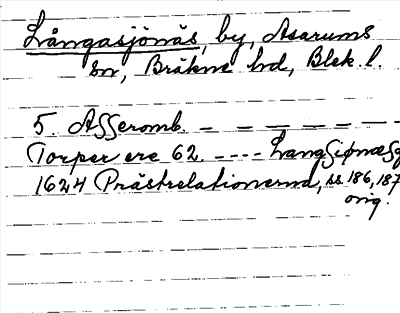 Långasjönäs, by, Asarums
sn, Bräkne hd, Blek. l.
5. Asseromb. — — — — — —
Torper ere 62. ---- Langsiønæs
1624 Prästrelationerna, ss. 186, 187
orig.